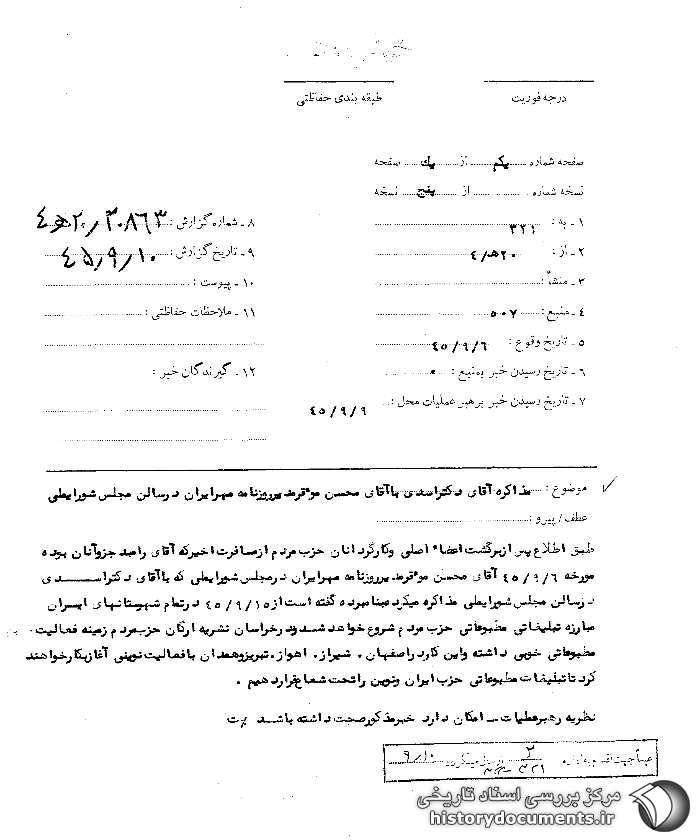 درجه فوریت
طبقه بندی حفاظتی
صفحه شماره یکم از یك صفحه
نسخه شماره از پنج نسخه
۱ - به : ۳۲۱
۲ - از : ۲۰هـ/٤
۳ - منشأ :
٤ - منبع : ۵۰۷
۵ - تاریخ وقوع : ٤۵/۹/٦
٦ - تاریخ رسیدن خبر بمنبع :
۷ - تاریخ رسیدن خبر برهبر عملیات محل : ٤۵/۹/۹
۸ - شماره گزارش : ۳۰۸٦۳/۲۰هـ٤
۹ - تاریخ گزارش : ٤۵/۹/۱۰
۱۰ - پیوست :
۱۱ - ملاحظات حفاظتی :
۱۲ - گیرندگان خبر :
موضوع : مذاکره آقای دکتر اسدی باآقای محسن موقر مدیر روزنامه مهرایران در سالن مجلس شورایملی
عطف / پیرو :
طبق اطلاع پس از برگشت اعضاء اصلی وکارگردانان حزب مردم از مسافرت اخیر که آقای رامبد جزو آنان بوده
مورخه ٤۵/۹/٦ آقای محسن موقر مدیر روزنامه مهرایران در مجلس شورایملی که باآقای دکتر اسدی
در سالن مجلس شورایملی مذاکره میکرد مبنامبرده گفته است از ٤۵/۹/۱۵ در تمام شهرستانهای ایران
مبارزه تبلیغاتی مطبوعاتی حزب مردم شروع خواهد شد و در خراسان نشریه ارگان حزب مردم زمینه فعالیت
مطبوعاتی خوبی داشته واین کار در اصفهان . شیراز . اهواز . تبریز وهمدان بافعالیت نوینی آغاز بکار خواهند
کرد تا تبلیغات مطبوعاتی حزب ایران ونوین را تحت شعاع قرار دهیم .
نظریه رهبر عملیات - امکان دارد خبر مذکور صحت داشته باشد
۹/۱۰
مرکز بررسی اسناد تاریخی
historydocuments.ir